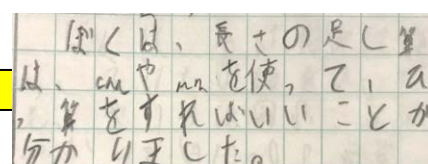 ぼくは、長さの足し算
は、cmやmmを使って、ひ
、算をすればいいことが
分かりました。